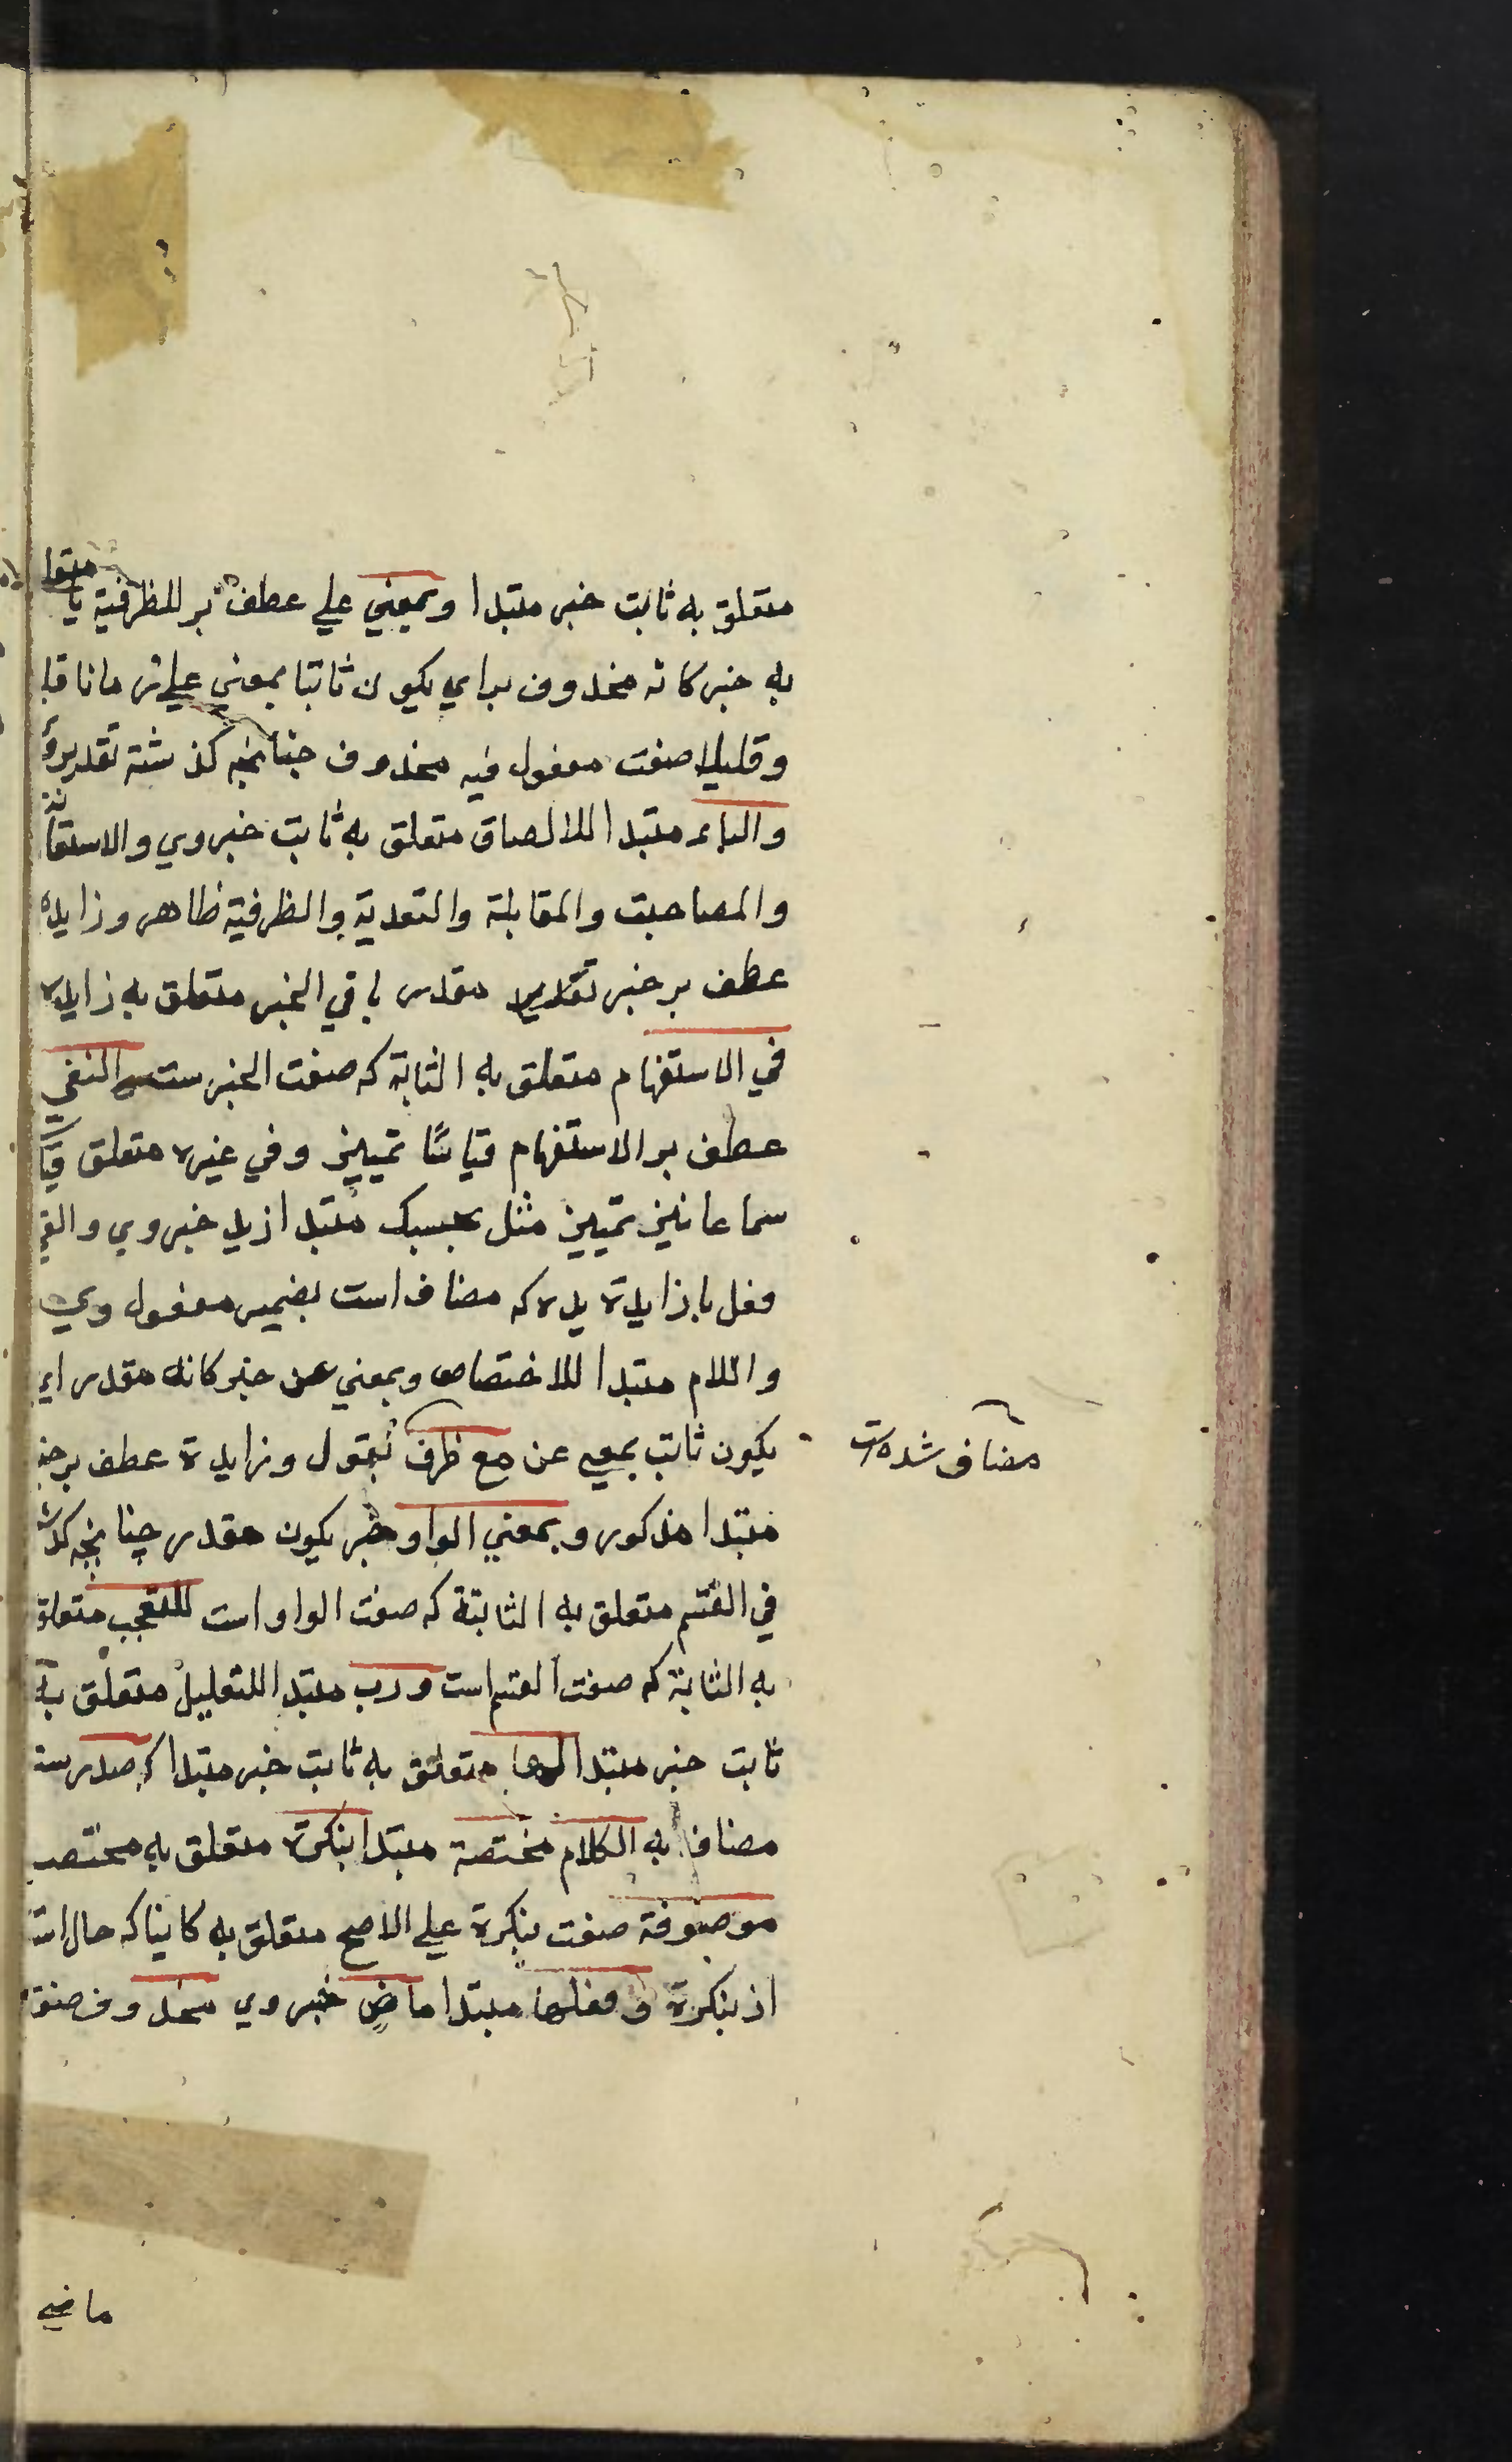 متعلق به ثابت خبر مبتدا وبمعني علي عطف بر للظرفية يا متعلق
به خبر كانه محذوف براي يكون ثابتا بمعني علي
وقليلا صفت مفعول فيه محذوف چنانچه كذشته تقديره
والباء مبتدا للالصاق متعلق به ثابت خبر وي والاستعانة
والمصاحبت والمقابلة والتعدية والظرفية ظاهر وزايده
عطف بر خبر مقدر باقي الخبر متعلق به زايده
في الاستفهام متعلق به الثابة كه صفت الخبر ست والنفي
عطف بر الاستفهام قياسًا تمييز وفي غيره متعلق
سماعا نيز تمييز مثل بحسبك مبتدا زيد خبر وي والقي
فعل با زايدة يده كه مضاف است بضمير مفعول وي
واللام مبتدا للاختصاص وبمعني عن خبر كانه مقدر اي
يكون ثابت بمعني عن مع ظرف بقول وزايدة عطف بر خبر
مبتدا مذكور وبمعني الواو خبر يكون مقدر چنانچه كذشت
في القسم متعلق به الثابتة كه صفت الواو است للتعجب متعلق
به الثابتة كه صفت القسم است ورب مبتدا للتقليل متعلق به
ثابت خبر مبتدا لها متعلق به ثابت خبر مبتدا كه صدر ست
مضاف به الكلام مختصة مبتدا بنكرة متعلق به مختص
موصوفة صفت بنكرة علي الاصح متعلق به كاينا كه حال است
از بنكرة وفعلها مبتدا ماضٍ خبر وي محذوف صفت
مضاف شده است
ماضي